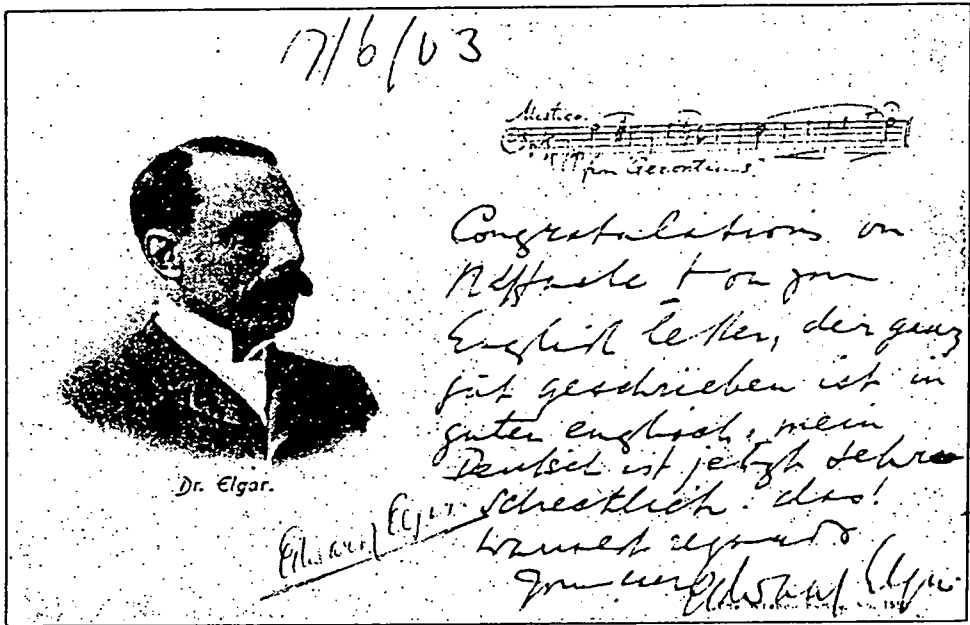 17/6/03
Mistico.
ppp from "Gerontius."
Congratulations on
+ on your
English letter, der ganz
gut geschrieben ist in
guten englisch, mein
Deutsch ist jetzt sehr
schrecklich. das!
Warmest regards
Dr. Elgar.
Edward Elgar
Edward Elgar